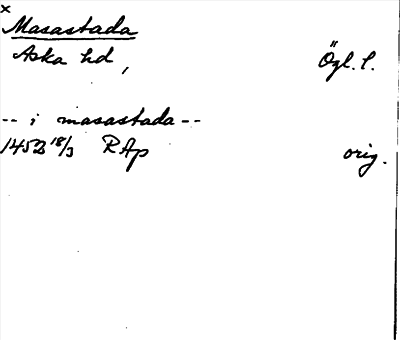 x
Masastada
Aska hd, Ögl. l.
-- i masastada --
1452 18/3 RAp orig.